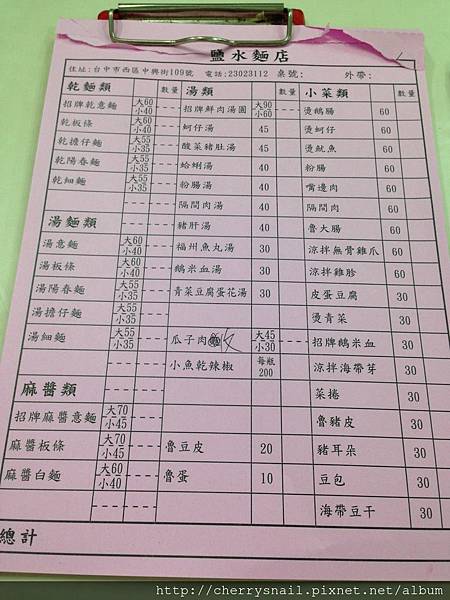 鹽水麵店
住址:台中市西區中興街109號 電話:23023112 桌號: 外帶:
乾麵類 數量 湯類 數量 小菜類 數量
招牌乾意麵 大60 小40 招牌鮮肉湯圓 大90 小60 燙鵝腸 60
乾板條 大60 小40 蚵仔湯 45 燙蚵仔 60
乾擔仔麵 大55 小35 酸菜豬肚湯 45 燙魷魚 60
乾陽春麵 大55 小35 蛤蜊湯 40 粉腸 60
乾細麵 大55 小35 粉腸湯 40 嘴邊肉 60
隔間肉湯 40 隔間肉 60
湯麵類 豬肝湯 40 魯大腸 60
湯意麵 大60 小40 福州魚丸湯 30 涼拌無骨雞爪 60
湯板條 大60 小40 鵝米血湯 30 涼拌雞胗 60
湯陽春麵 大55 小35 青菜豆腐蛋花湯 30 皮蛋豆腐 30
湯擔仔麵 大55 小35 燙青菜 30
湯細麵 大55 小35 瓜子肉飯 大45 小30 招牌鵝米血 30
小魚乾辣椒 每瓶200 涼拌海帶芽 30
麻醬類 菜捲 30
招牌麻醬意麵 大70 小45 魯豬皮 30
麻醬板條 大70 小45 魯豆皮 20 豬耳朵 30
麻醬白麵 大60 小40 魯蛋 10 豆包 30
海帶豆干 30
總計
http://cherrysnail.pixnet.net/album